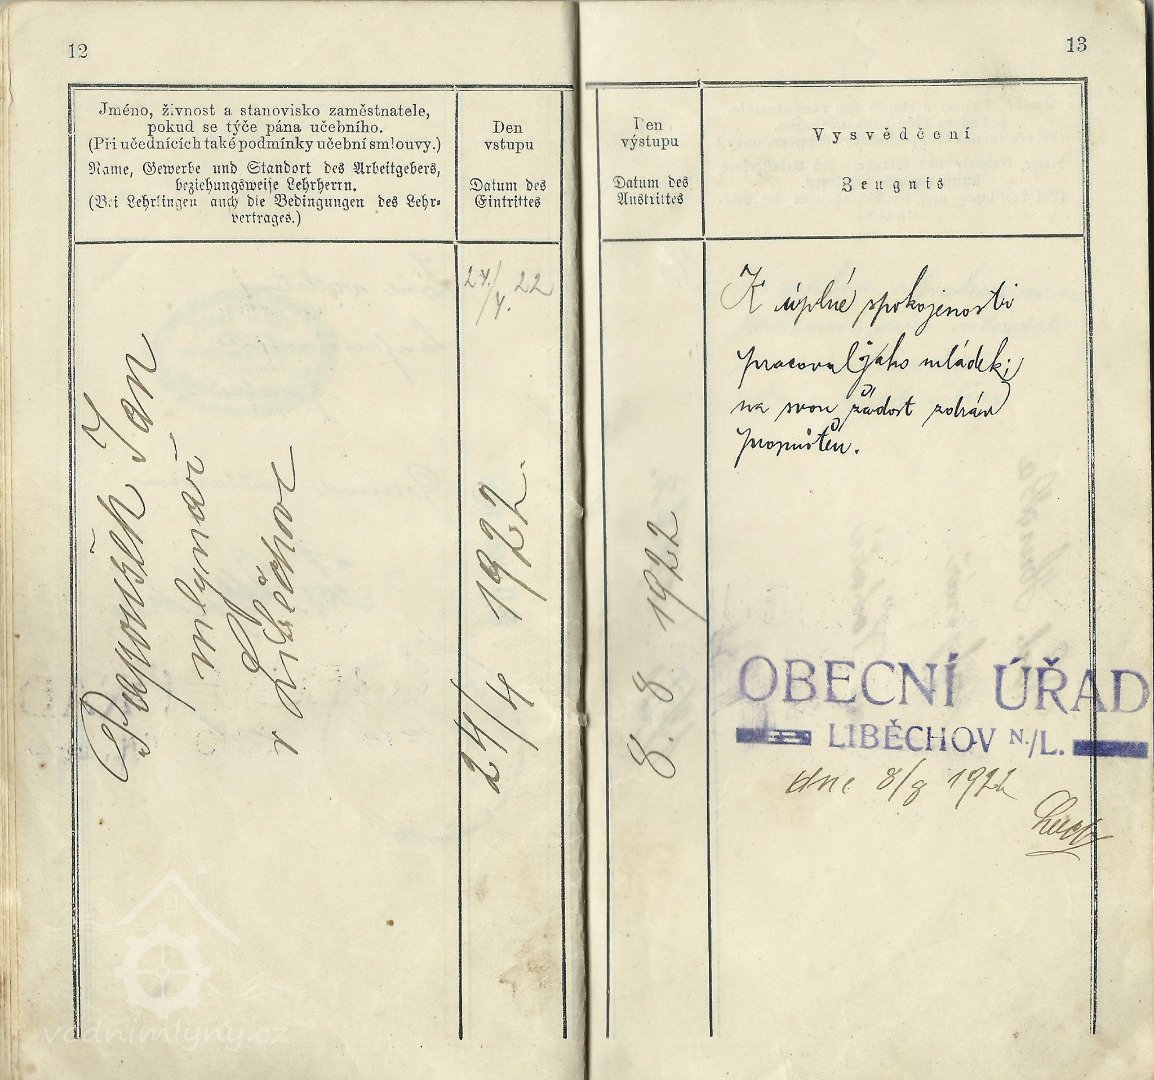 12
Jméno, živnost a stanovisko zaměstnatele,
pokud se týče pána učebního.
(Při učednících také podmínky učební smlouvy.)
Name, Gewerbe und Standort des Arbeitgebers,
beziehungsweise Lehrherrn.
(Bei Lehrlingen auch die Bedingungen des Lehr-
vertrages.)
Den
vstupu
Datum des
Eintrittes
24/4. 22
Jan
mlynář
v Liběchově
24/4 1922.
13
Den
výstupu
Datum des
Austrittes
Vysvědčení
Zeugnis
8. 8. 1922
K úplné spokojenosti
pracoval jako mládek;
na svou žádost zdráv
propuštěn.
OBECNÍ ÚŘAD
LIBĚCHOV N./L.
dne 8/8 1922
vodnimlyny.cz